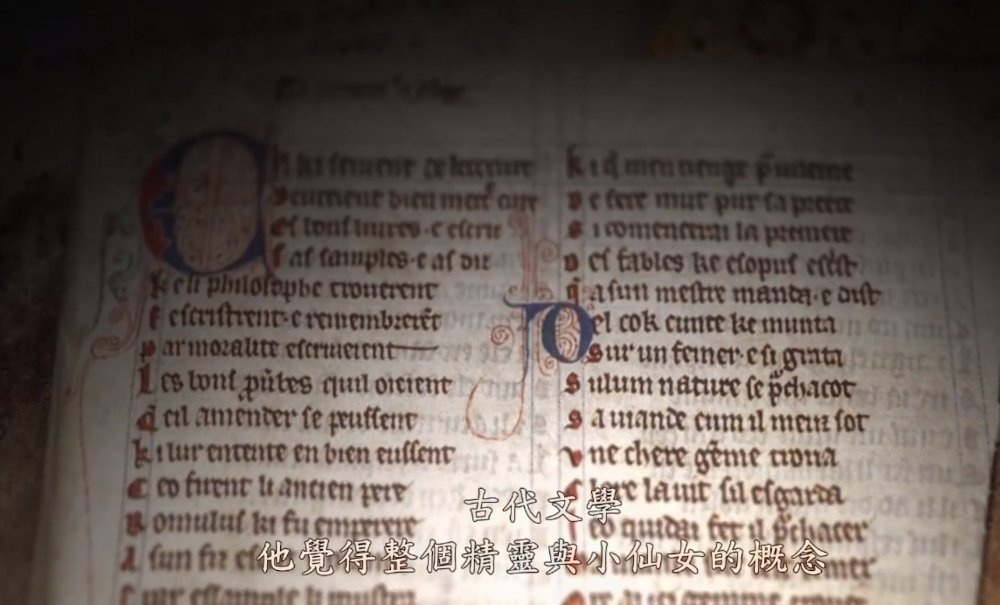 il ki sevent de lettrure
Devreient bien mett' cure
es bons livres e escriz
s as samples e as diz
ke li philosophe troverent
E escristrent e remembrerēt
Par moralite escriveient
Les bons p̄verbes quil oieient
Q̄ cil amender se peussent
ki lur entente en bien eussent
Ceo firent li ancien pere
Romulus ki fu emperere
A sun fiz es
essample li mustra
ki q̄ men tienge
De fere mut pur sa preere
Si comencerai la premiere
Des fables ke esopus escst
q̄ a sun mestre manda e dist
Del cok cunte ke munta
Sur un femer e si grata
Sulum nature se p̄chacot
Sa viande cum il meuz sot
Une chere gēme trova
Clere la vit sil esgarda
quidai fet il p̄chacer
古代文學
他覺得整個精靈與小仙女的概念